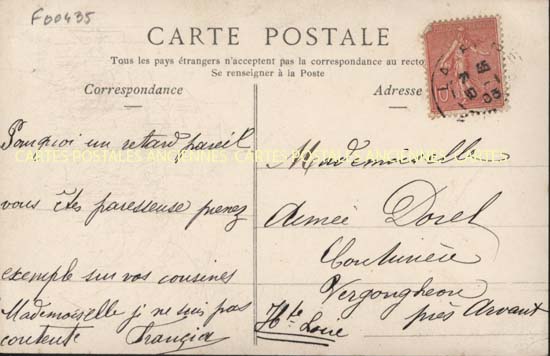 F00435
CARTE POSTALE
Tous les pays étrangers n'acceptent pas la correspondance au recto
Se renseigner à la Poste
Correspondance
Adresse
Pourquoi un retard pareil
vous êtes paresseuse prenez
exemple sur vos cousines
Mademoiselle je ne suis pas
contente
CARTES POSTALES ANCIENNES CARTES POSTALES ANCIENNES CARTES
Mademoiselle
Aimée Dorel
Couturière
Vergongheon
près Arvant
Hte Loire
10